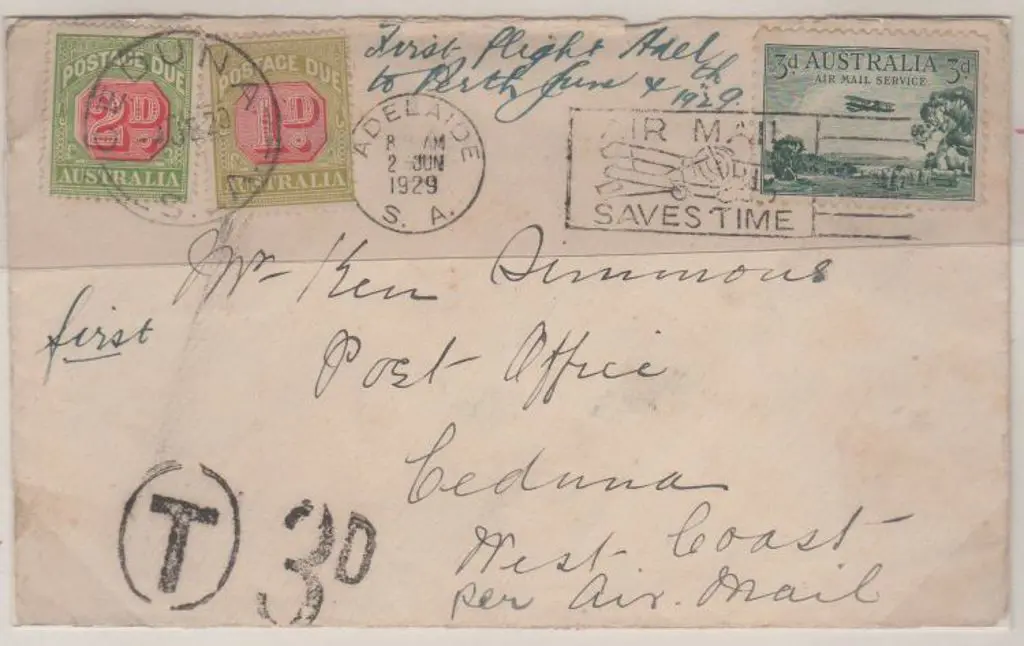 POSTAGE DUE
2D
AUSTRALIA
POSTAGE DUE
1D
AUSTRALIA
CEDUNA
S. A.
First flight Adel
to Perth June 4th 1929.
ADELAIDE
8 AM
2 JUN
1929
S. A.
AIR MAIL
SAVES TIME
3d AUSTRALIA 3d
AIR MAIL SERVICE
Mr Ken Simmons
first
Post Office
Ceduna
West Coast
per Air. Mail
T 3D